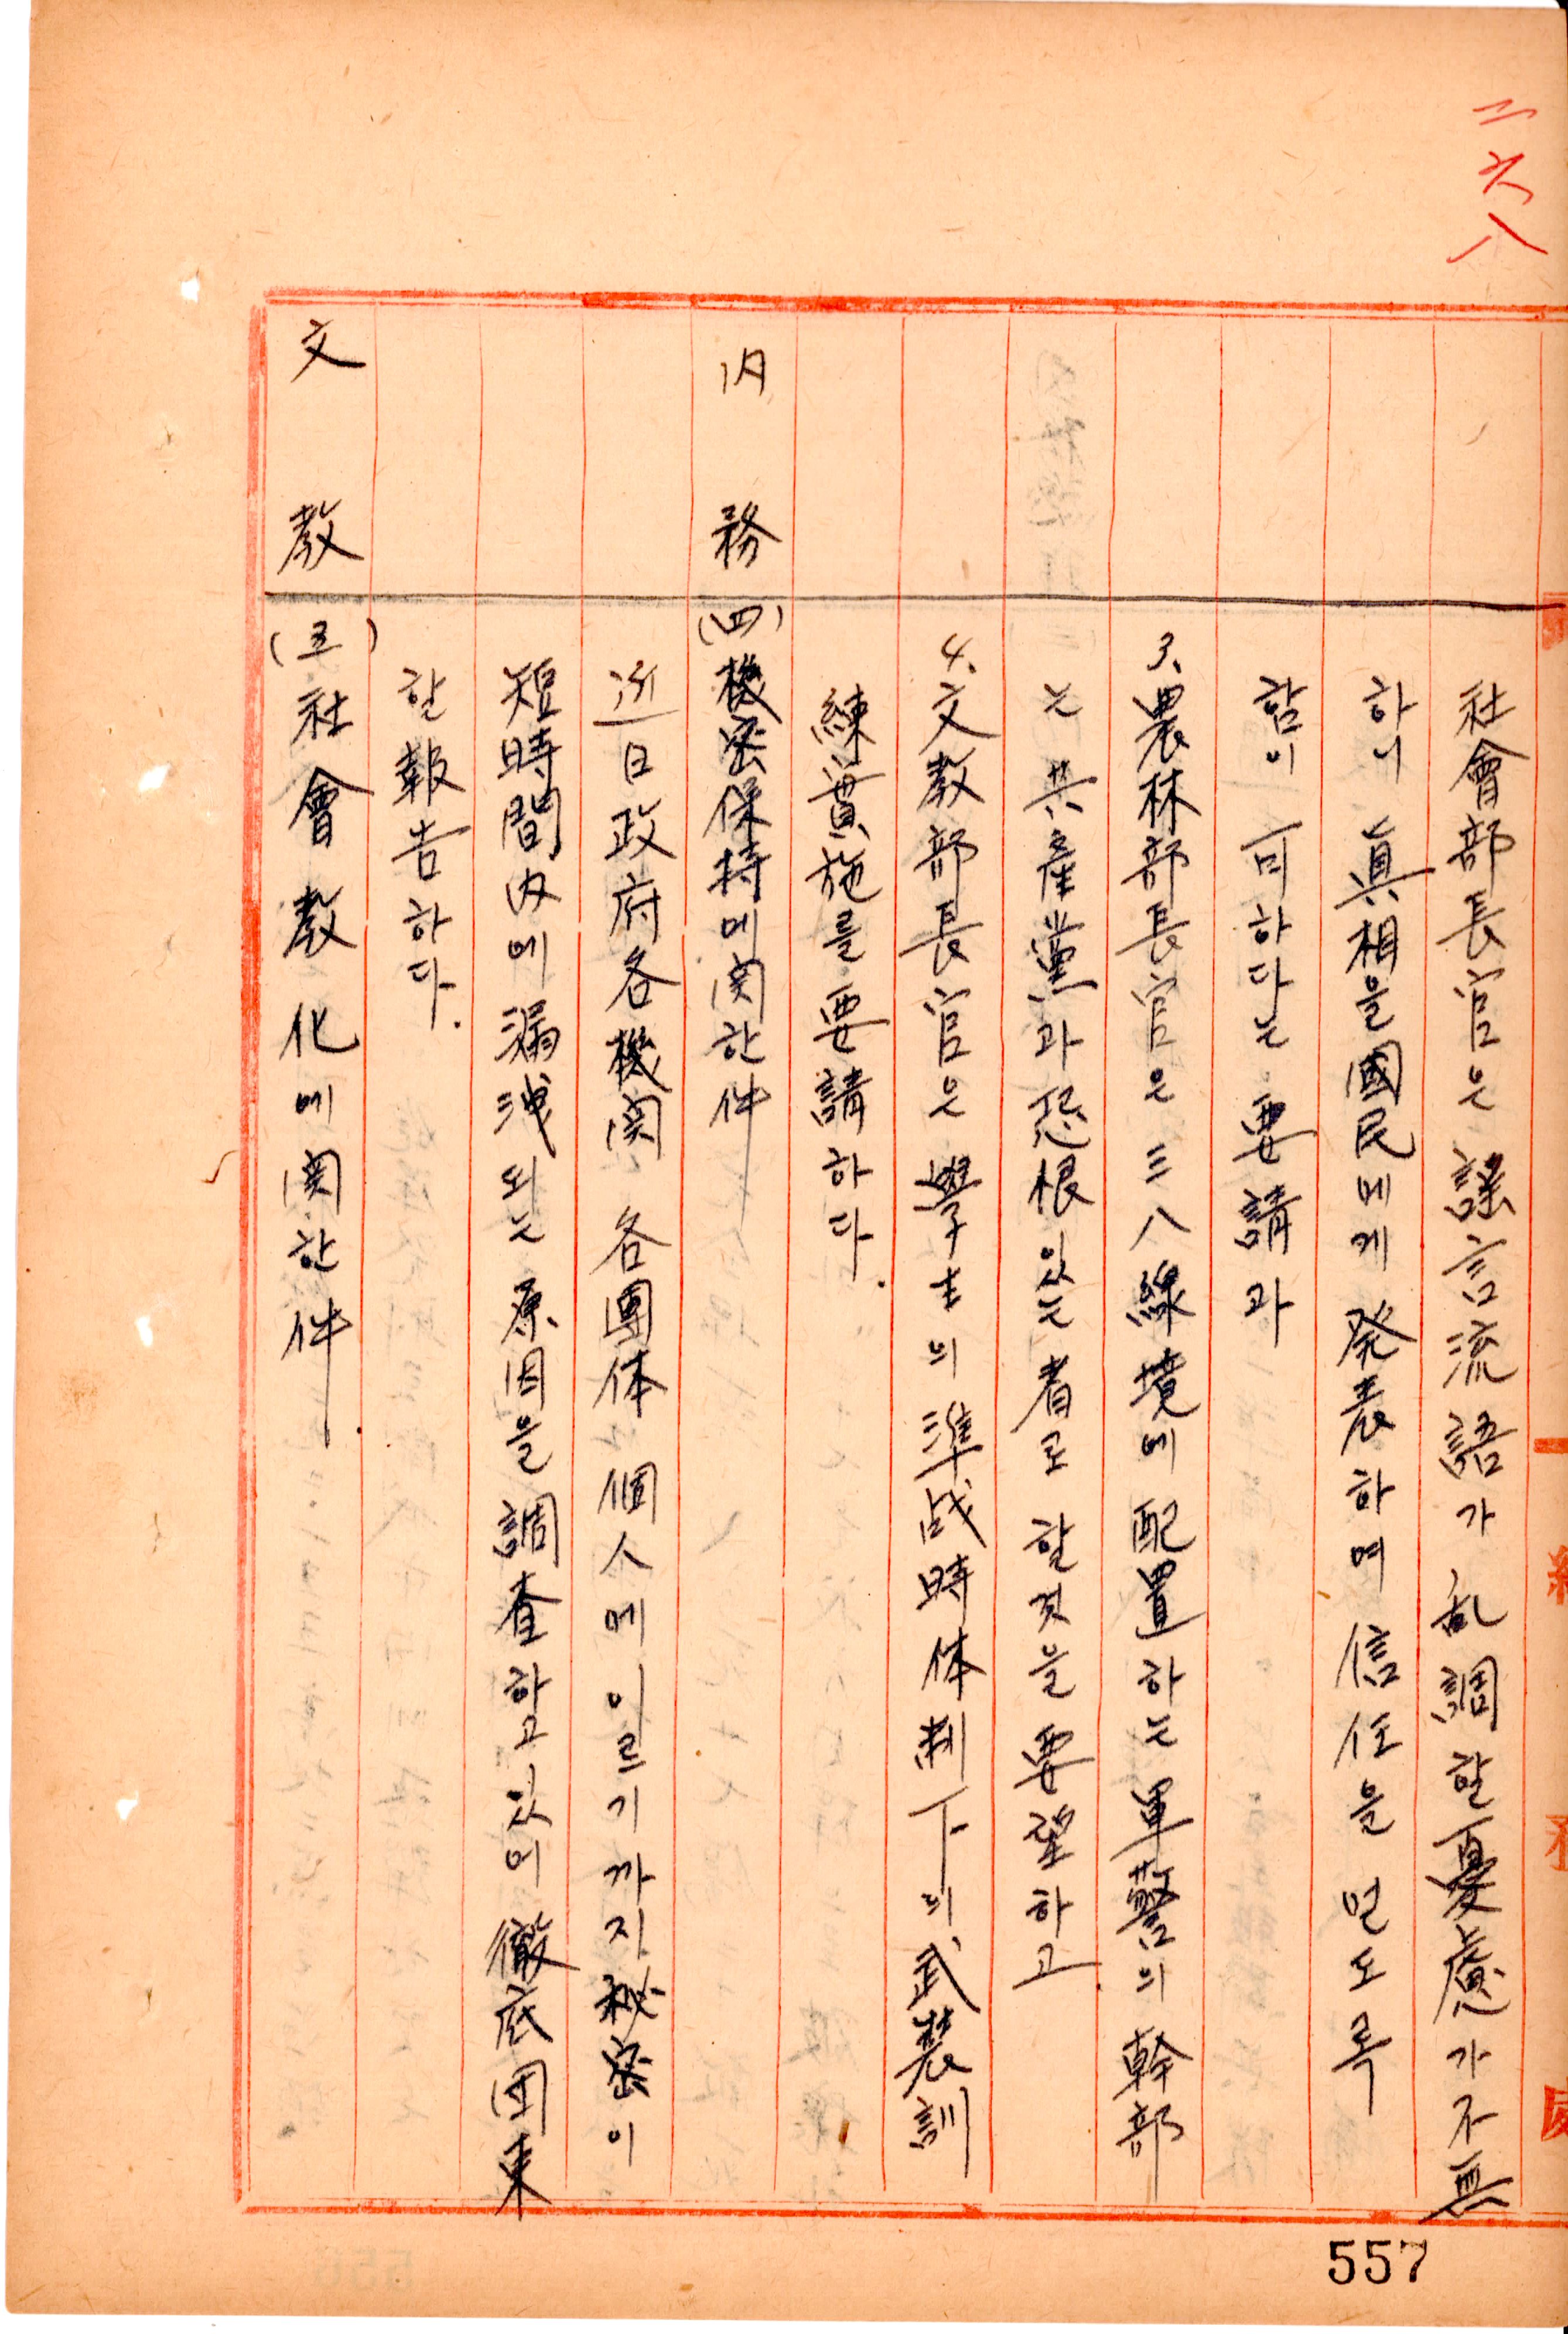 二六八
社會部長官은 謠言流語가 乱調할 憂慮가 不無
하니 眞相을 國民에게 発表하며 信任을 먿도록
함이 可하다는 要請과
3、農林部長官은 三八線境에 配置하는 軍警의 幹部
는 共産黨과 恐根 있는 者로 할것을 要望하고
4、文敎部長官은 學生의 準战時体制下의 武裝訓
練實施를 要請하다.
內務 (四) 機密保持에 関한 件
近日 政府 各機関 各團体 個人에 이르기까지 秘密이
短時間內에 漏洩되는 原因을 調査하고 있이 徹底団束
할 報告하다.
文敎 (五) 社會敎化에 関한 件.
557